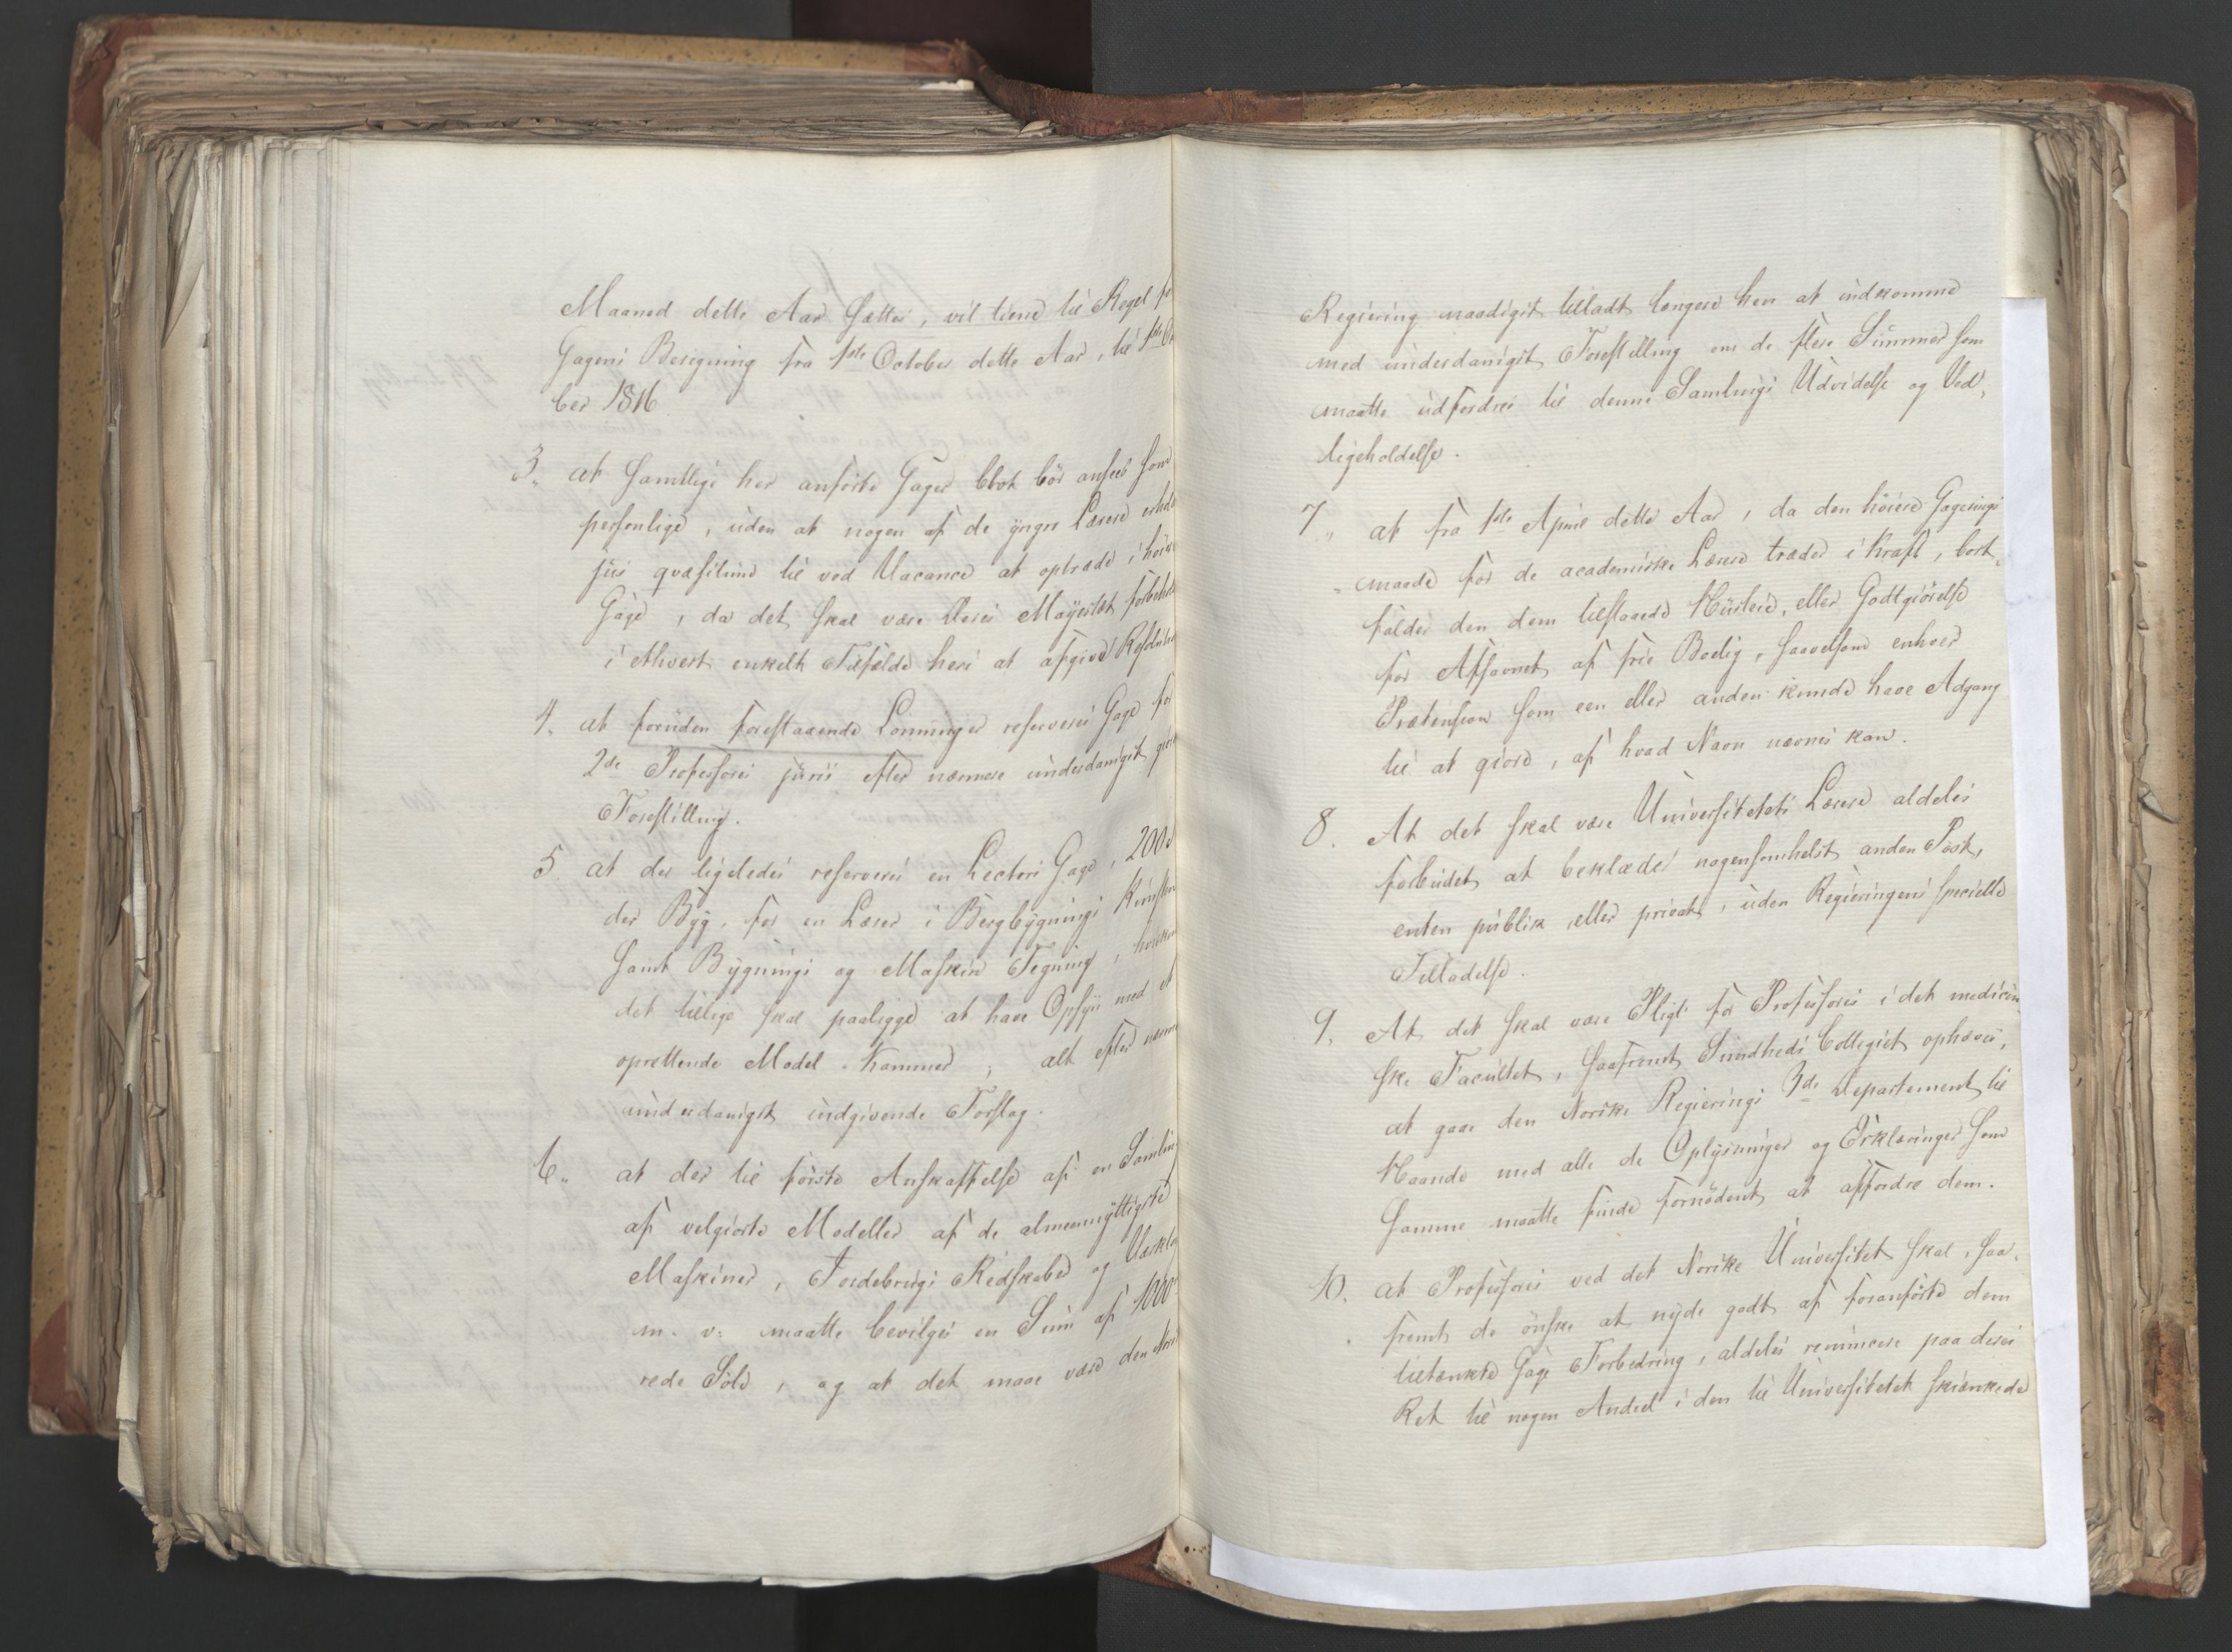 Maaned dette Aar sættes, vil tiene til Regel for
Gagens Beregning fra 1ste October dette Aar, til 1ste Octo
ber 1816.
3. at samtlige her anførte Gager blot bør ansees som
personlige, uden at nogen af de yngre Lærere erholde
jus qvæsitum til ved Vacance at optræde i høiere
Gage, da det skal være Deres Mayestæt forbeholdt
i ethvert enkelt Tilfælde heri at afgive Resolution
4. at foruden forestaaende Lønninger reserveres Gage for
2de Professores juris efter nærmere underdanigst
Forestilling.
5. at der ligeledes reserveres en Lectors Gage, 200
der Byg, for en Lærer i Bergbygnings Kunsten
samt Bygnings og Maskin Tegning, hvilken
det tillige skal paaligge at have Opsyn med et
oprettende Model-Kammer; alt efter nærmere
underdanigst indgivende Forslag.
6. at der til første Anskaffelse af en Samling
af velgiorte Modeller af de almeennyttigste
Maskiner, Jordebrugs Redskaber og Værktøi
m. v. maatte bevilges en Sum af 1000
rede Sølv, og at det maae være den Norske
Regiering naadigst tilladt længere hen at indkomme
med underdanigst Forestilling om de flere Summer som
maatte udfordres til denne Samlings Udvidelse og Ved-
ligeholdelse.
7. at fra 1ste April dette Aar, da den høiere Gagerings
maade for de academiske Lærere træder i Kraft, bort-
falder den dem tilstaaede Huusleie, eller Godtgiørelse
for Afsavnet af frie Bolig, saavelsom enhver
Prætension som een eller anden kunde have Adgang
til at giøre, af hvad Navn nævnes kan.
8. At det skal være Universitetets Lærere aldeles
forbudet at beklæde nogensomhelst anden Post,
enten publik eller privat, uden Regieringens specielle
Tilladelse.
9. At det skal være Pligt for Professores i det medicin-
ske Facultet, saafremt Sundheds Collegiet ophæves,
at gaae den Norske Regierings 3die Departement til
Haande med alle de Oplysninger og Erklæringer som
samme maatte finde fornødent at affordre dem.
10. at Professores ved det Norske Universitet skal, saa-
fremt de ønske at nyde godt af foranførte dem
tiltænkte Gage Forbedring, aldeles renuncere paa deres
Ret til nogen Andeel i den til Universitetet skiænkede